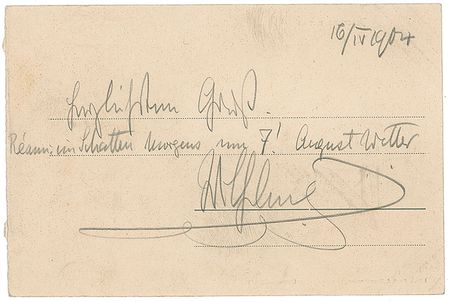 16/IV 1904
Herzlichsten Gruß.
Réaum. im Schatten Morgens um 7! August Wetter